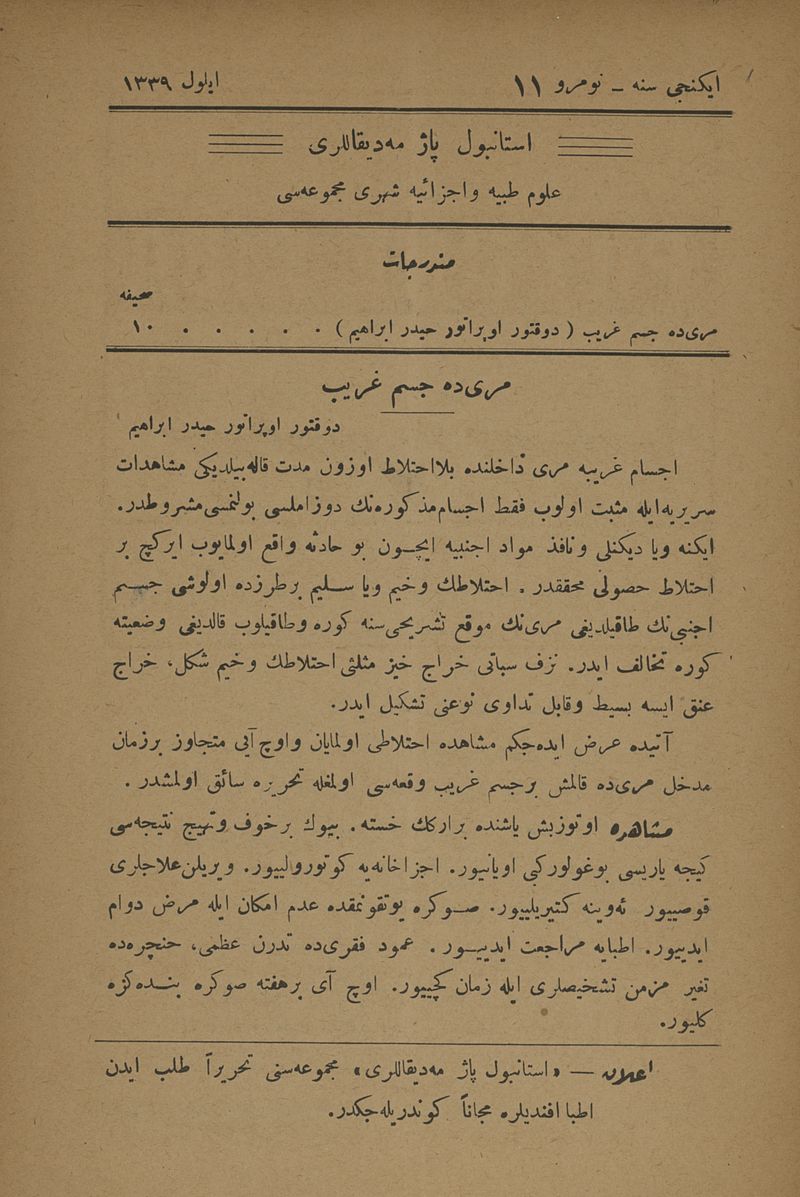 ایکنجی سنه ـ نومرو ١١
ایلول ١٣٣٩
استانبول پاژ مه‌دیقاللری
علوم طبیه و اجزائیه شهری مجموعه‌سی
مندرجات
صحیفه
مری‌ده جسم غریب ( دوقتور اوپراتور حیدر ابراهیم ) . . . . . . ١٠
مری‌ده جسم غریب
دوقتور اوپراتور حیدر ابراهیم
اجسام غریبه مری داخلنده بلااحتلاط اوزون مدت قاله‌بیلدیكی مشاهدات
سریریه‌ایله مثبت اولوب فقط اجسام‌مذكوره‌نك دوزاملسی بولنمسی مشروطدر.
ایكنه ویا دیكنلی ونافذ مواد اجنبیه ایچون بو حادثه واقع اولمایوب ایركچ بر
احتلاط حصولی محققدر . احتلاطك وخیم ویا سلیم برطرزده اولوشی جسم
اجنبی‌نك طاقیلدیغی مری‌نك موقع تشریحی‌سنه كوره وطاقیلوب قالدیغی وضعیته
كوره تخالف ایدر. نزف سباتی خراج خیز مثلثی احتلاطك وخیم شكل، خراج
عنق ایسه بسیط وقابل تداوی نوعنی تشكیل ایدر.
آتیده عرض ایده‌جكم مشاهده احتلاطی اولمایان واوچ‌آیی متجاوز برزمان
مدخل مری‌ده قالمش برجسم غریب وقعه‌سی اولمغله تحریره سائق اولمشدر .
مشاهره اوتوزبش یاشنده براركك خسته. بیوك برخوف وتهیج نتیجه‌سی
كیجه یاریسی بوغولوركی اویانیور. اجزاخانه‌یه كوتورولییور. ویریلن‌علاجلری
قوصییور ئه‌وینه كتیریلییور. صوكره یوتقونمقده عدم امكان ایله مرض دوام
ایدییور. اطبایه مراجعت ایدییور . عمود فقری‌ده تدرن عظمی، حنجره‌ده
تغیر مزمن تشخیصلری ایله زمان كچییور. اوچ آی برهفته صوكره بنده‌كزه
كلیور.
اعلان — «استانبول پاژ مه‌دیقاللری» مجموعه‌سنی تحریراً طلب ایدن
اطبا افندیلره مجاناً كوندریله‌جكدر.